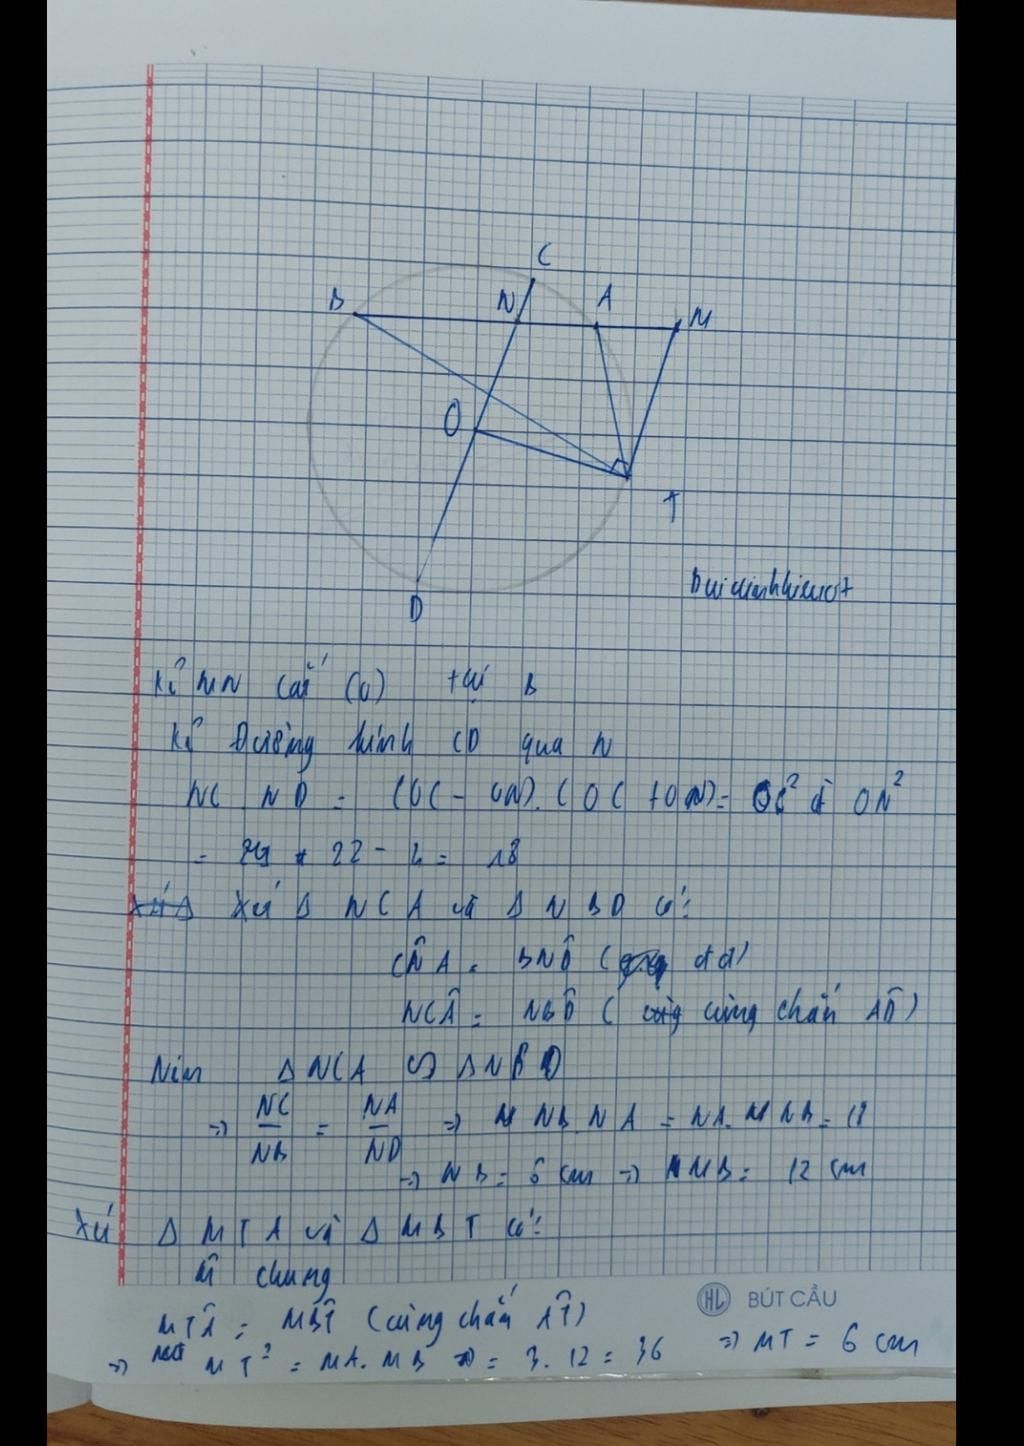 C
B N A M
O
T
D
Kẻ MN cắt (O) tại B
Kẻ Đường kính CD qua N
NC . ND = (OC - ON).(OC + ON) = OC² - ON²
= 22 - 4 = 18
Xét Δ NCA và Δ NBD có:
CNA = BND (đđ)
NCA = NBD (cùng chắn AD)
Nên Δ NCA ∽ Δ NBD
=> NC/NB = NA/ND => NB.NA = NA.NB = 18
=> NB = 6 cm => MB = 12 cm
Xét Δ MTA và Δ MBT có:
M chung
MTA = MBT (cùng chắn AT)
HL BÚT CẦU
=> MT² = MA.MB = 3.12 = 36 => MT = 6 cm